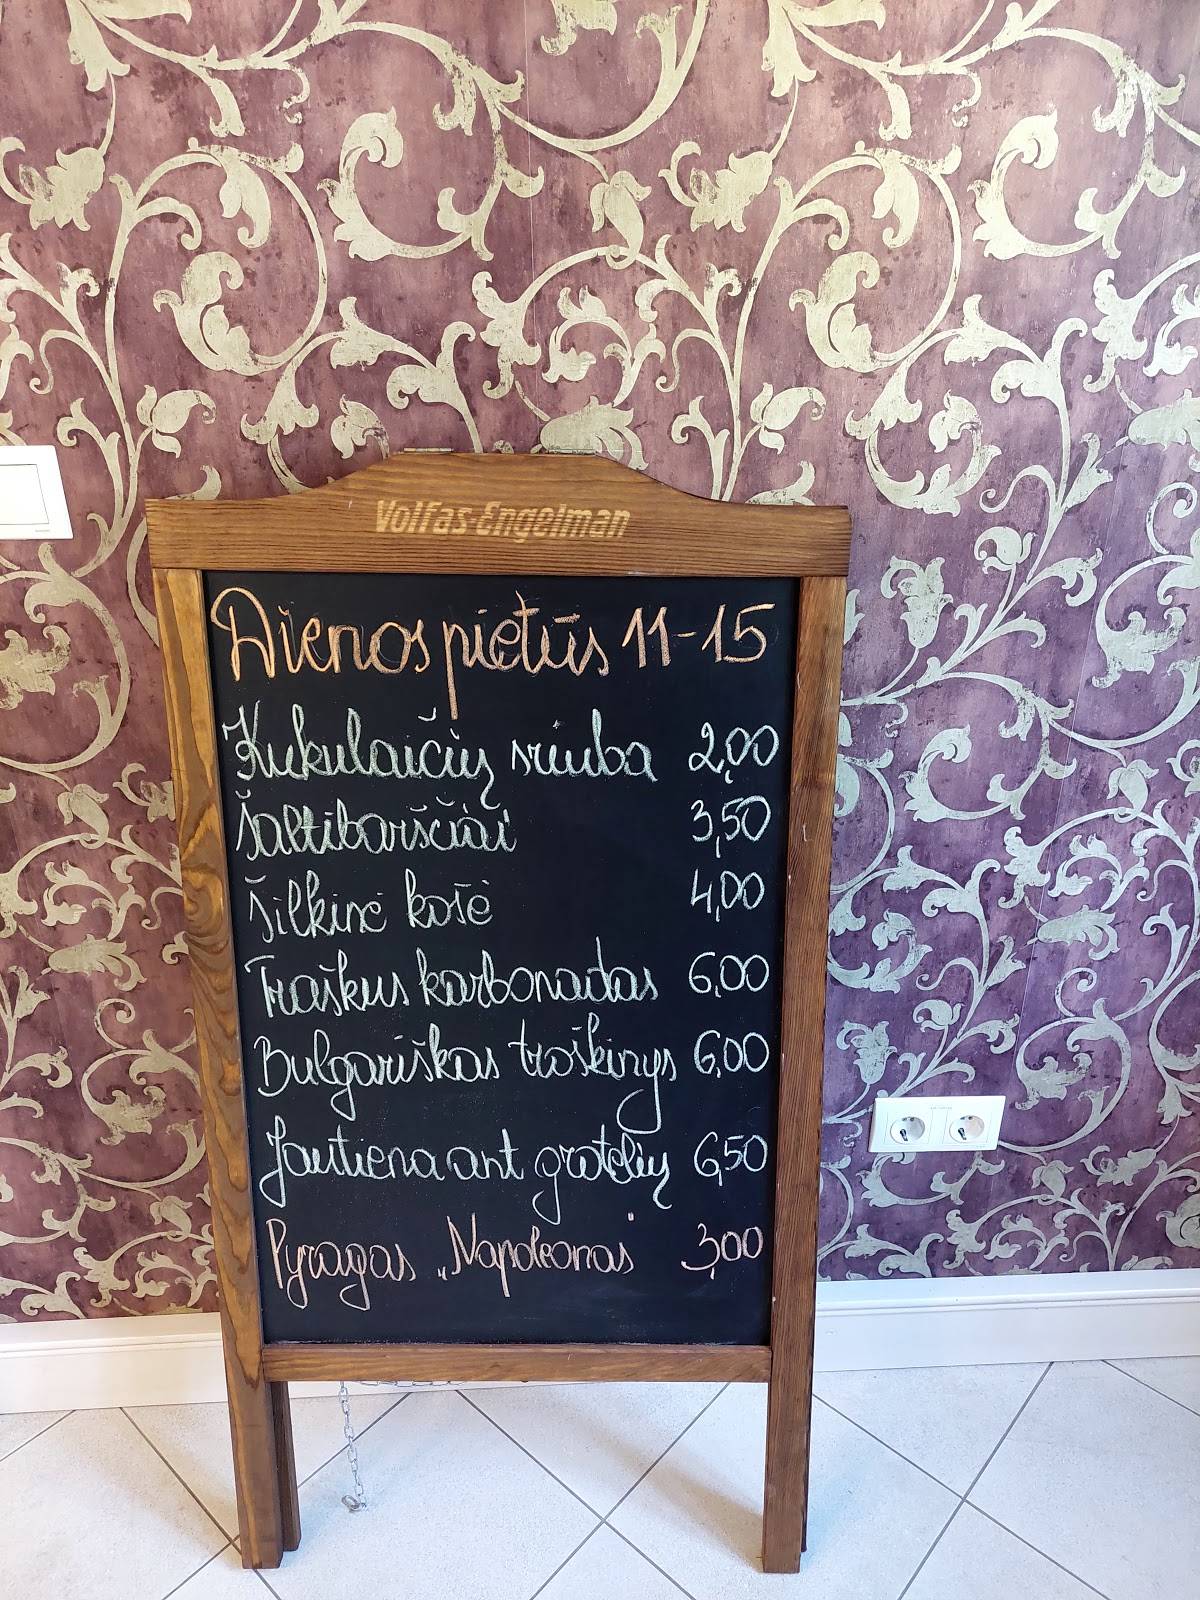 Volfas Engelman
Dienos pietūs 11-15
Kukulaičių sriuba 2,00
Šaltibarščiai 3,50
Šilkinė košė 4,00
Traškus karbonadas 6,00
Bulgariškas troškinys 6,00
Jautiena ant grotelių 6,50
Pyragas „Napoleonas" 3,00